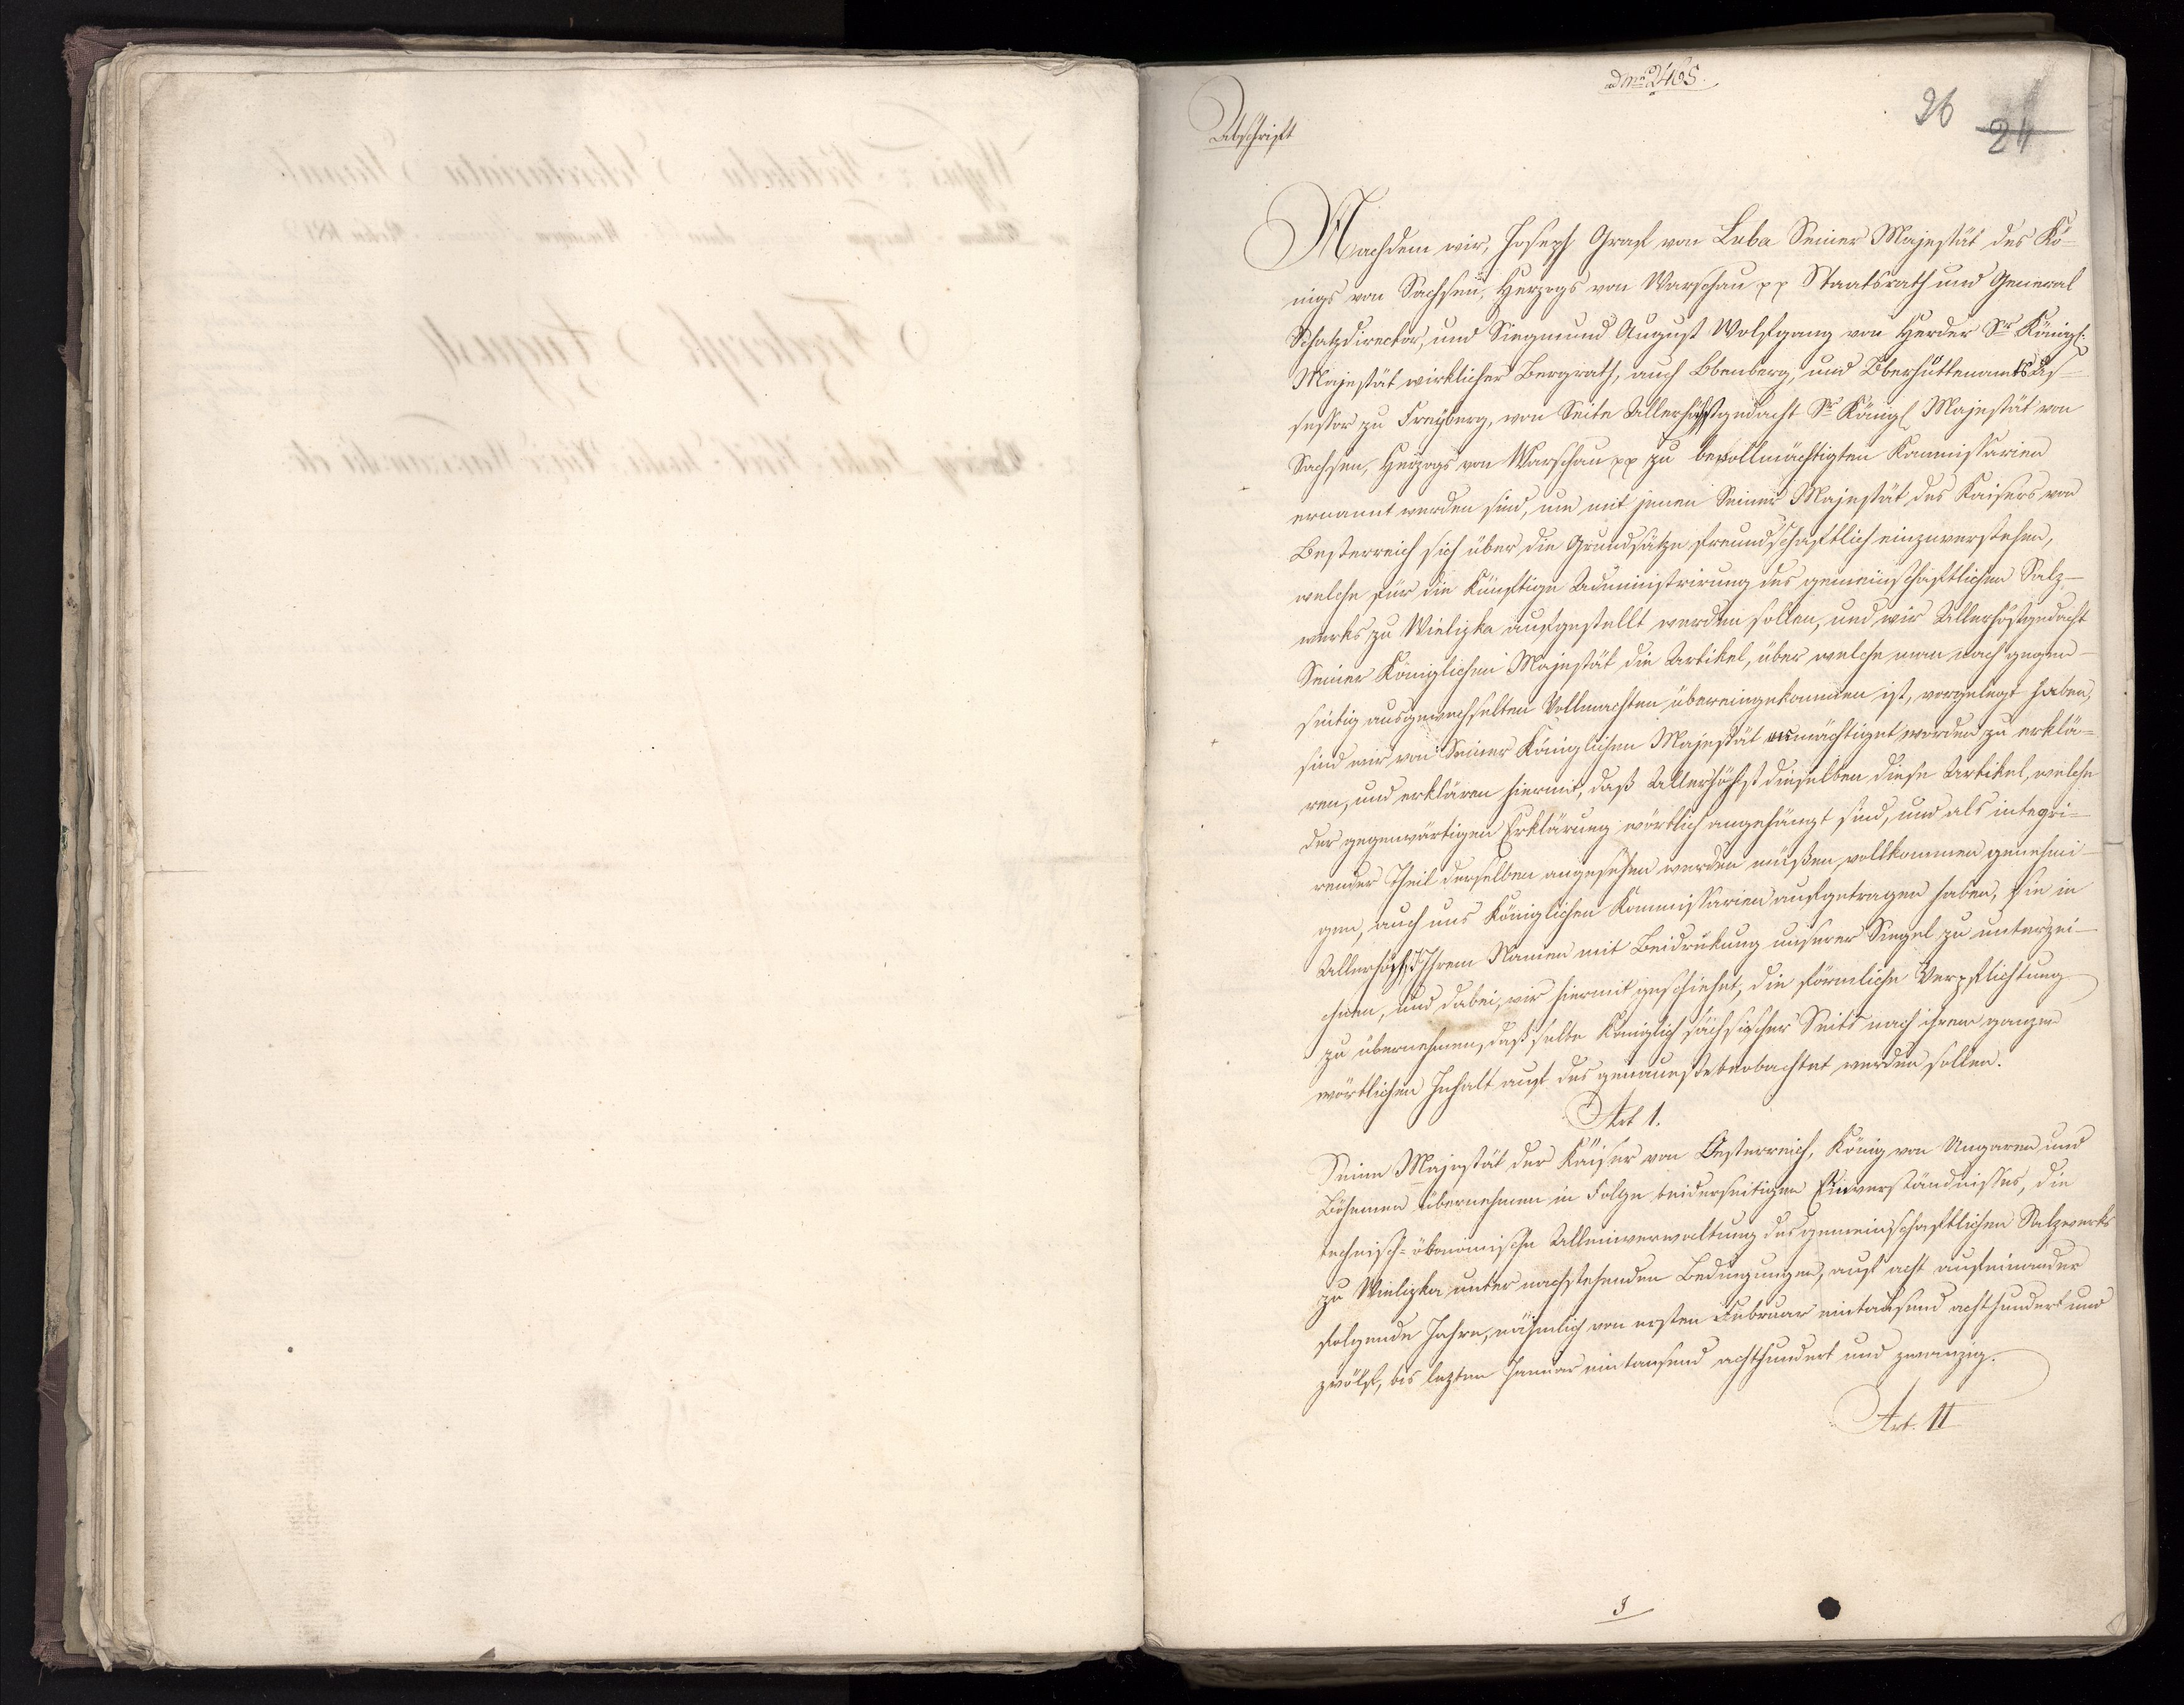 ad Nrũ 2465.
26 24
Abschrift
Nachdem wir, Joseph Graf von Luba Seiner Majestät des Kö-
nigs von Sachsen, Herzogs von Warschau pp Staatsrath und General
Schatzdirector, und Siegmund August Wolfgang von Herder Sr Königl:
Majestät wirklicher Bergrath, auch Obenberg, und Oberhüttenamts As-
sessor zu Freyberg, von Seite Allerhöchstgedacht Sr Königl Majestät von
Sachsen, Herzogs von Warschau pp zu bevollmächtigten Kommissarien
ernannt worden sind, um mit jenen Seiner Majestät des Kaisers von
Oesterreich sich über die Grundsätze freundschaftlich einzuverstehen,
welche für die künftige Administrirung des gemeinschaftlichen Salz-
werks zu Wielizka aufgestellt werden sollen, und wir Allerhöstgedacht
Seiner Königlichen Majestät die Artikel, über welche man nach gegen-
seitig ausgewechselten Vollmachten übereingekommen ist, vorgelegt haben,
sind wir von Seiner Königlichen Majestät ermächtiget worden zu erklä-
ren, und erklären hiermit, daß Allerhöchst dieselben diese Artikel, welche
der gegenwärtigen Erklärung wörtlich angehängt sind, und als integri-
render Theil derselben angesehen werden müßen vollkommen genehmi-
gen, auch uns Königlichen Kommissarien aufgetragen haben, sie in
Allerhöchst Ihrem Namen mit Beidrükung unserer Siegel zu unterzei-
chnen, und dabei, wie hiermit geschiehet, die förmliche Verpflichtung
zu übernehmen, daß selbe Königlich sächsischer Seits nach ihrem ganzen
wörtlichen Inhalt auf das genaueste beobachtet werden sollen.
Art 1.
Seine Majestät der Kaiser von Oesterreich, König von Ungaren und
Böhemen übernehmen in Folge beiderseitigen Einverständnisses, die
technisch-ökonomische Alleinverwaltung des gemeinschaftlichen Salzwerks
zu Wielizka unter nachstehenden Bedingungen, auf acht aufeinander
folgende Jahre, nähmlich von ersten Februar eintausend achthundert und
zwölf, bis lezten Januar eintausend achthundert und zwanzig.
Art. II